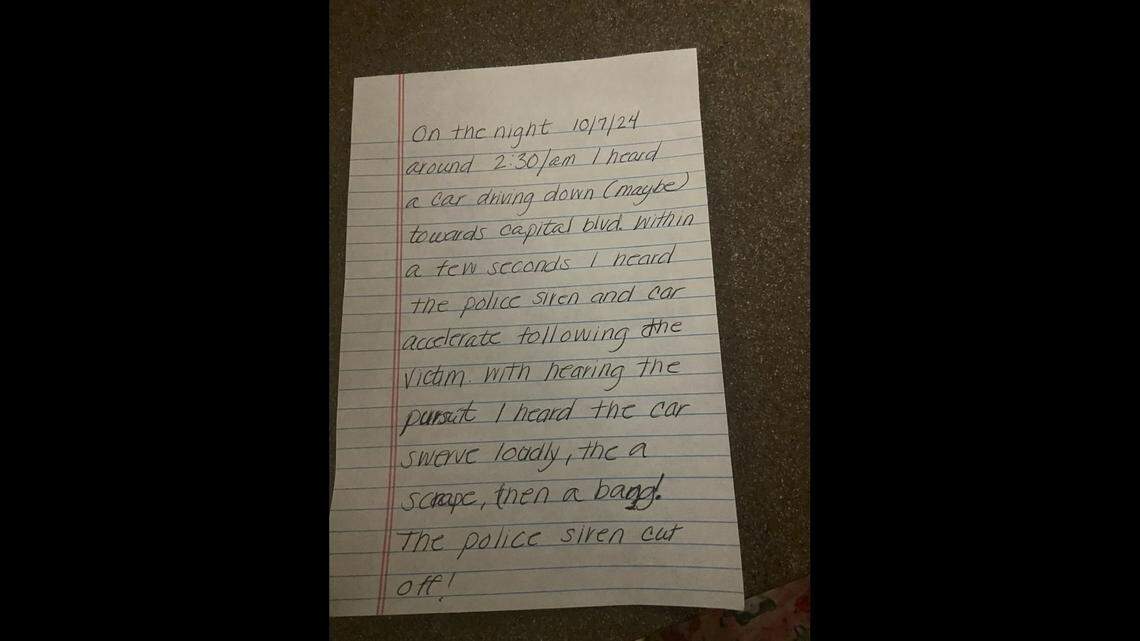 On the night 10/7/24
around 2:30/am I heard
a car driving down (maybe)
towards capital blvd. Within
a few seconds I heard
the police siren and car
accelerate following the
victim. With hearing the
pursuit I heard the car
swerve loadly, the a
scrape, then a bang!
The police siren cut
off!